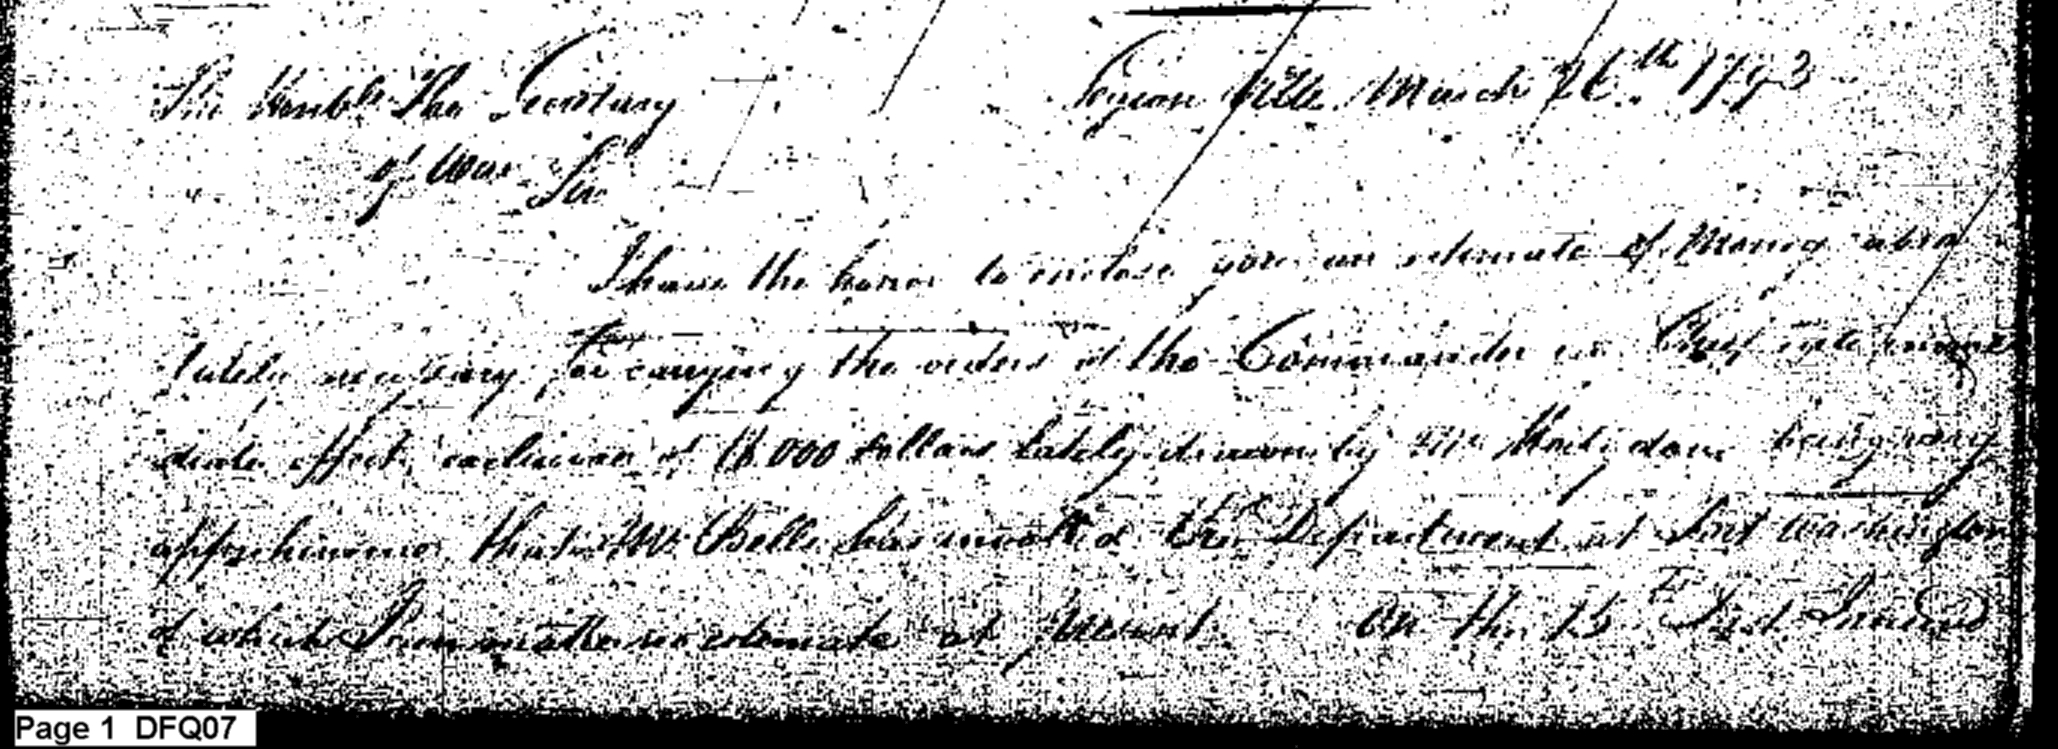 The Honble The Secretary
Legion Ville March 26th 1793
of War Sir
I have the honor to enclose you an estimate of Money abso
lutely necessary for carrying the orders of the Commander in Chief into imme
diate effect, exclusive of 18.000 dollars lately drawn by Mr being very
apprehensive that Mr Belli has the Department at Fort Washington
of which I can make no estimate at present On the 15th
Page 1 DFQ07